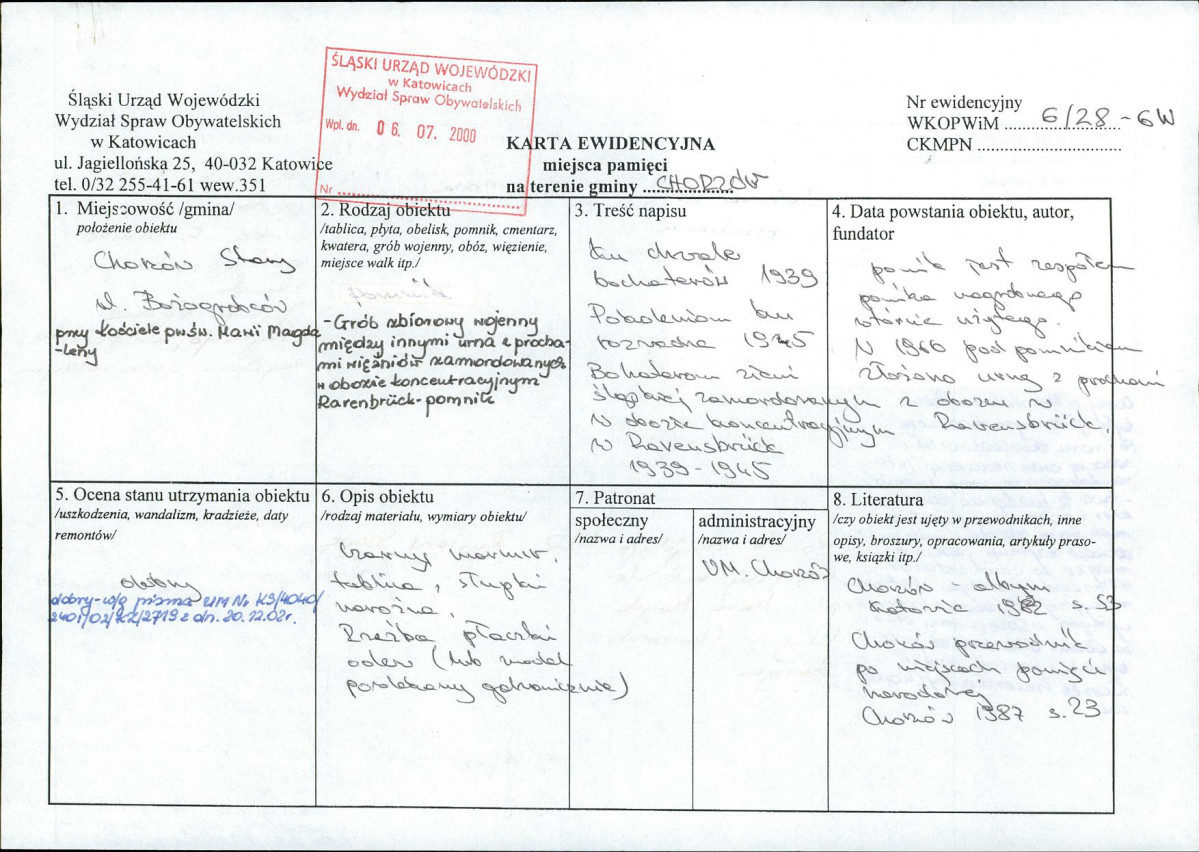 ŚLĄSKI URZĄD WOJEWÓDZKI
w Katowicach
Wydział Spraw Obywatelskich
Wpł. dn. 06. 07. 2000
Nr
Śląski Urząd Wojewódzki
Wydział Spraw Obywatelskich
w Katowicach
ul. Jagiellońska 25, 40-032 Katowice
tel. 0/32 255-41-61 wew.351
KARTA EWIDENCYJNA
miejsca pamięci
na terenie gminy CHORZÓW
Nr ewidencyjny
WKOPWiM 6/28-6W
CKMPN
1. Miejscowość /gmina/
położenie obiektu
Chorzów Stary
ul. Bożogrobców
przy kościele pw. św. Marii Magda
-leny
2. Rodzaj obiektu
/tablica, płyta, obelisk, pomnik, cmentarz,
kwatera, grób wojenny, obóz, więzienie,
miejsce walk itp./
pomnik
-Grób zbiorowy wojenny
między innymi urna z procha-
mi więźniów zamordowanych
w obozie koncentracyjnym
Ravenbrück-pomnik
3. Treść napisu
ku chwale
bochaterów 1939
Pokoleniom ku
rozwadze 1945
Bohaterom ziemi
śląskiej zamordowanym
w obozie koncentracyjnym
w Ravensbrück
1939-1945
4. Data powstania obiektu, autor,
fundator
pomnik jest zespołem
pomnika nagrobnego
wtórnie użytego.
W 1966 pod pomnikiem
złożono urnę z prochami
z obozu w
Ravensbrück.
5. Ocena stanu utrzymania obiektu
/uszkodzenia, wandalizm, kradzieże, daty
remontów/
dobry
dobry-w/g pisma UM Nr KS/4040/
2401/02/KZ/2719 z dn. 20.12.02r.
6. Opis obiektu
/rodzaj materiału, wymiary obiektu/
Czarny marmur,
tablica, słupki
narożne,
Rzeźba płaczki
odlew (lub model
powlekany galwanicznie)
7. Patronat
społeczny
/nazwa i adres/
administracyjny
/nazwa i adres/
UM. Chorzów
8. Literatura
/czy obiekt jest ujęty w przewodnikach, inne
opisy, broszury, opracowania, artykuły praso-
we, książki itp./
Chorzów - album
Katowice 1982 s. 53
Chorzów przewodnik
po miejscach pamięci
narodowej
Chorzów 1987 s. 23